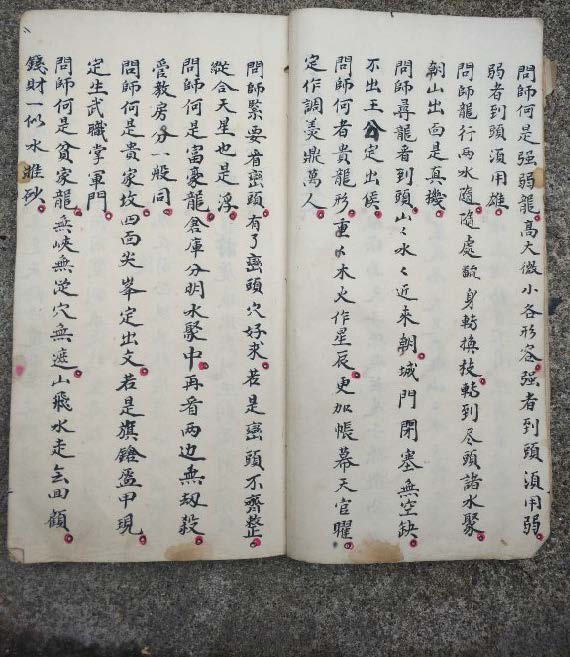 問師何是强弱龍高大微小各形容强者到頭須用弱
弱者到頭須用雄
問師龍行两水隨隨處 身轉换枝 到尽頭諸水聚
朝山出面是真機
問師尋龍看到頭山々水々近来朝城門閉塞無空缺
不出王公定出侯
問師何者貴龍形重々木火作星辰更加帳幕天官曜
定作調羹鼎萬人
問師緊要看峦頭有了峦頭穴好求若是峦頭不齊整
縱合天星也是浮
問師何是富豪龍倉庫分明水聚中再看两边無劫殺
管教房分一般同
問師何是貴家坟四面尖峯定出文若是旗鎗盔甲現
定生武職掌軍門
問師何是貧家龍無峡無 穴無遮山飛水走無回顧
錢財一似水 砂